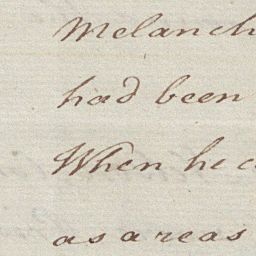 Melanch
had been
When he c
as a reas